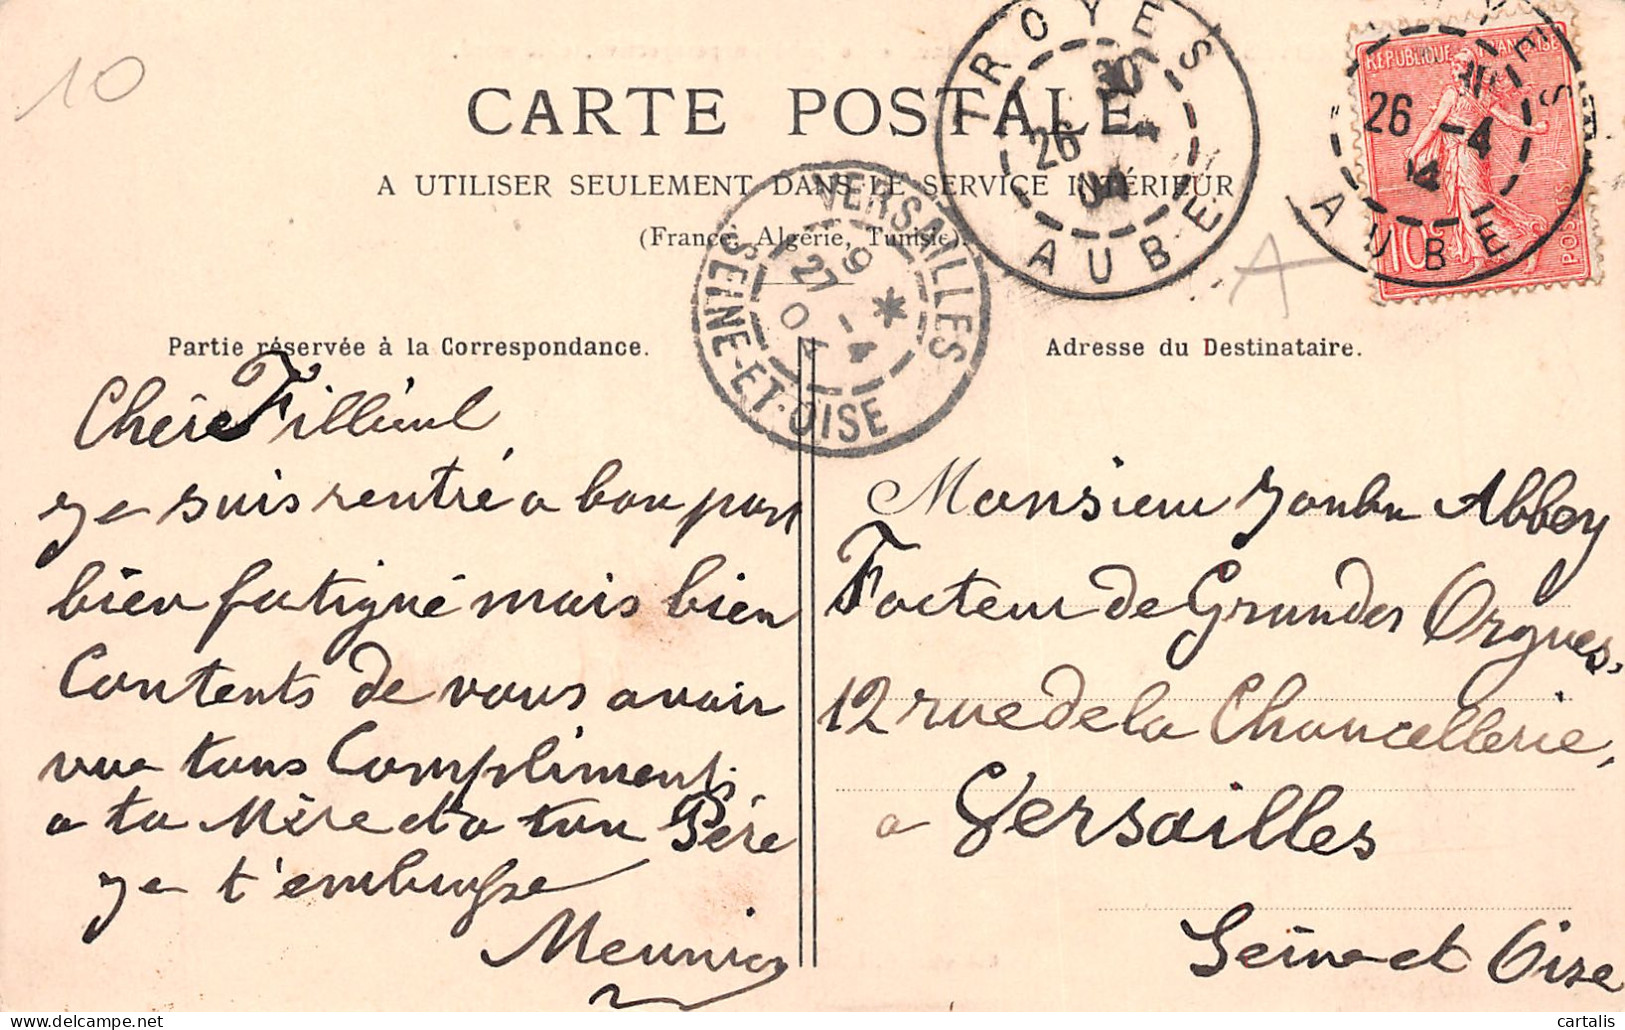 10
CARTE POSTALE
A UTILISER SEULEMENT DANS LE SERVICE INTÉRIEUR
(France, Algérie, Tunisie).
TROYES
30
26 -4
04
AUBE
RÉPUBLIQUE FRANÇAISE
POSTES
10
26 -4
AUBE
VERSAILLES
9
27 -4
04
SEINE-ET-OISE
A
Partie réservée à la Correspondance.
Chère Filleul
Je suis rentré a bon port
bien fatigué mais bien
Contents de vous avoir
vue tous Compliments
a ta Mère et a ton Père
Je t'embrasse
Meunier
Adresse du Destinataire.
Monsieur Abbey
Facteur de Grandes Orgues,
12 rue de la Chancellerie,
a Versailles
Seine et Oise
cartalis